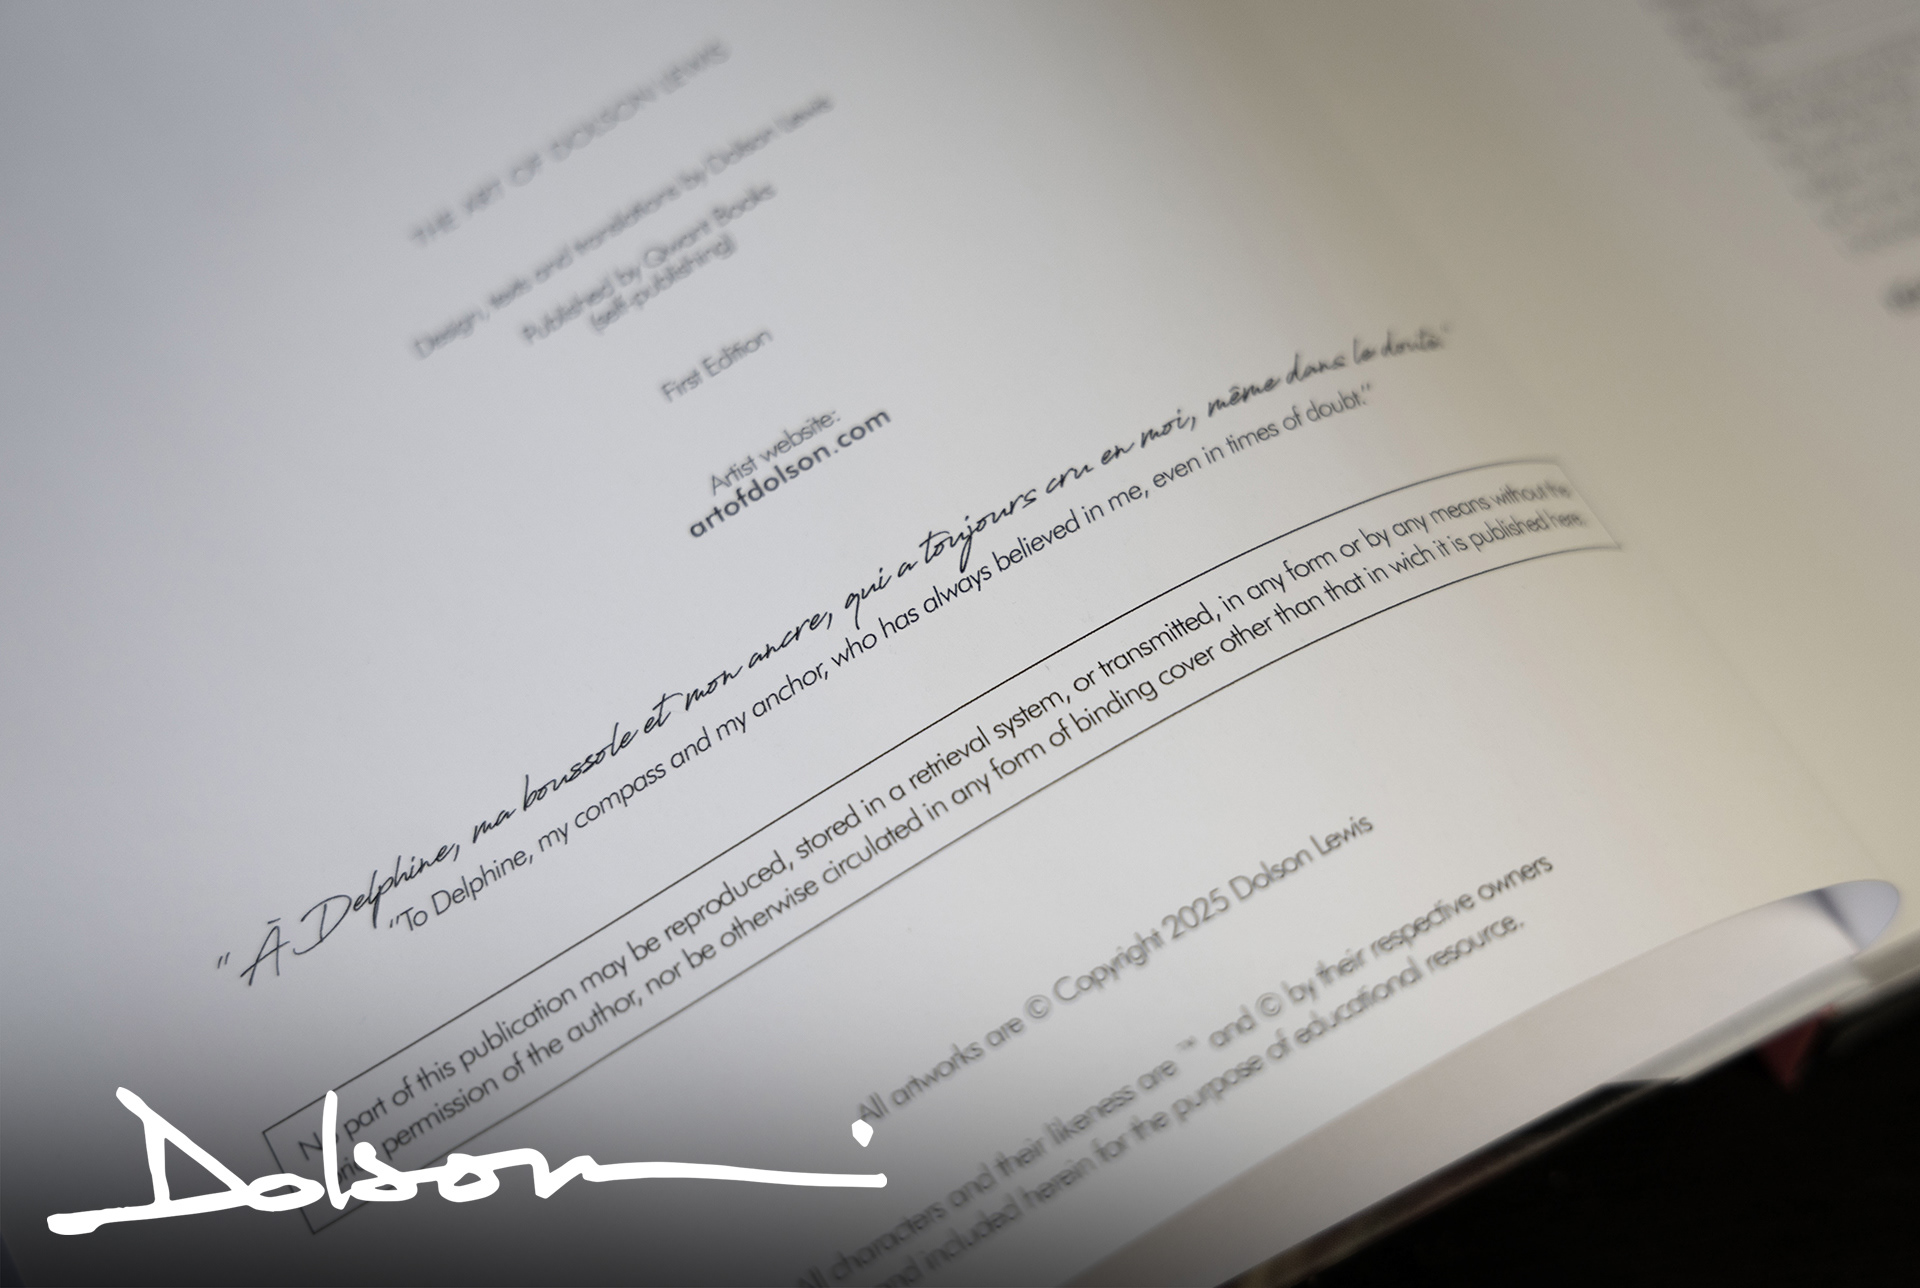 THE ART OF DOLSON LEWIS
Design, texts and translations by Dolson Lewis
Published by Qwant Books
(self-publishing)
First Edition
Artist website:
artofdolson.com
" À Delphine, ma boussole et mon ancre, qui a toujours cru en moi, même dans le doute."
"To Delphine, my compass and my anchor, who has always believed in me, even in times of doubt."
No part of this publication may be reproduced, stored in a retrieval system, or transmitted, in any form or by any means without the
prior permission of the author, nor be otherwise circulated in any form of binding cover other than that in wich it is published here.
All artworks are © Copyright 2025 Dolson Lewis
All characters and their likeness are ™ and © by their respective owners
and included herein for the purpose of educational resource.
Dolson